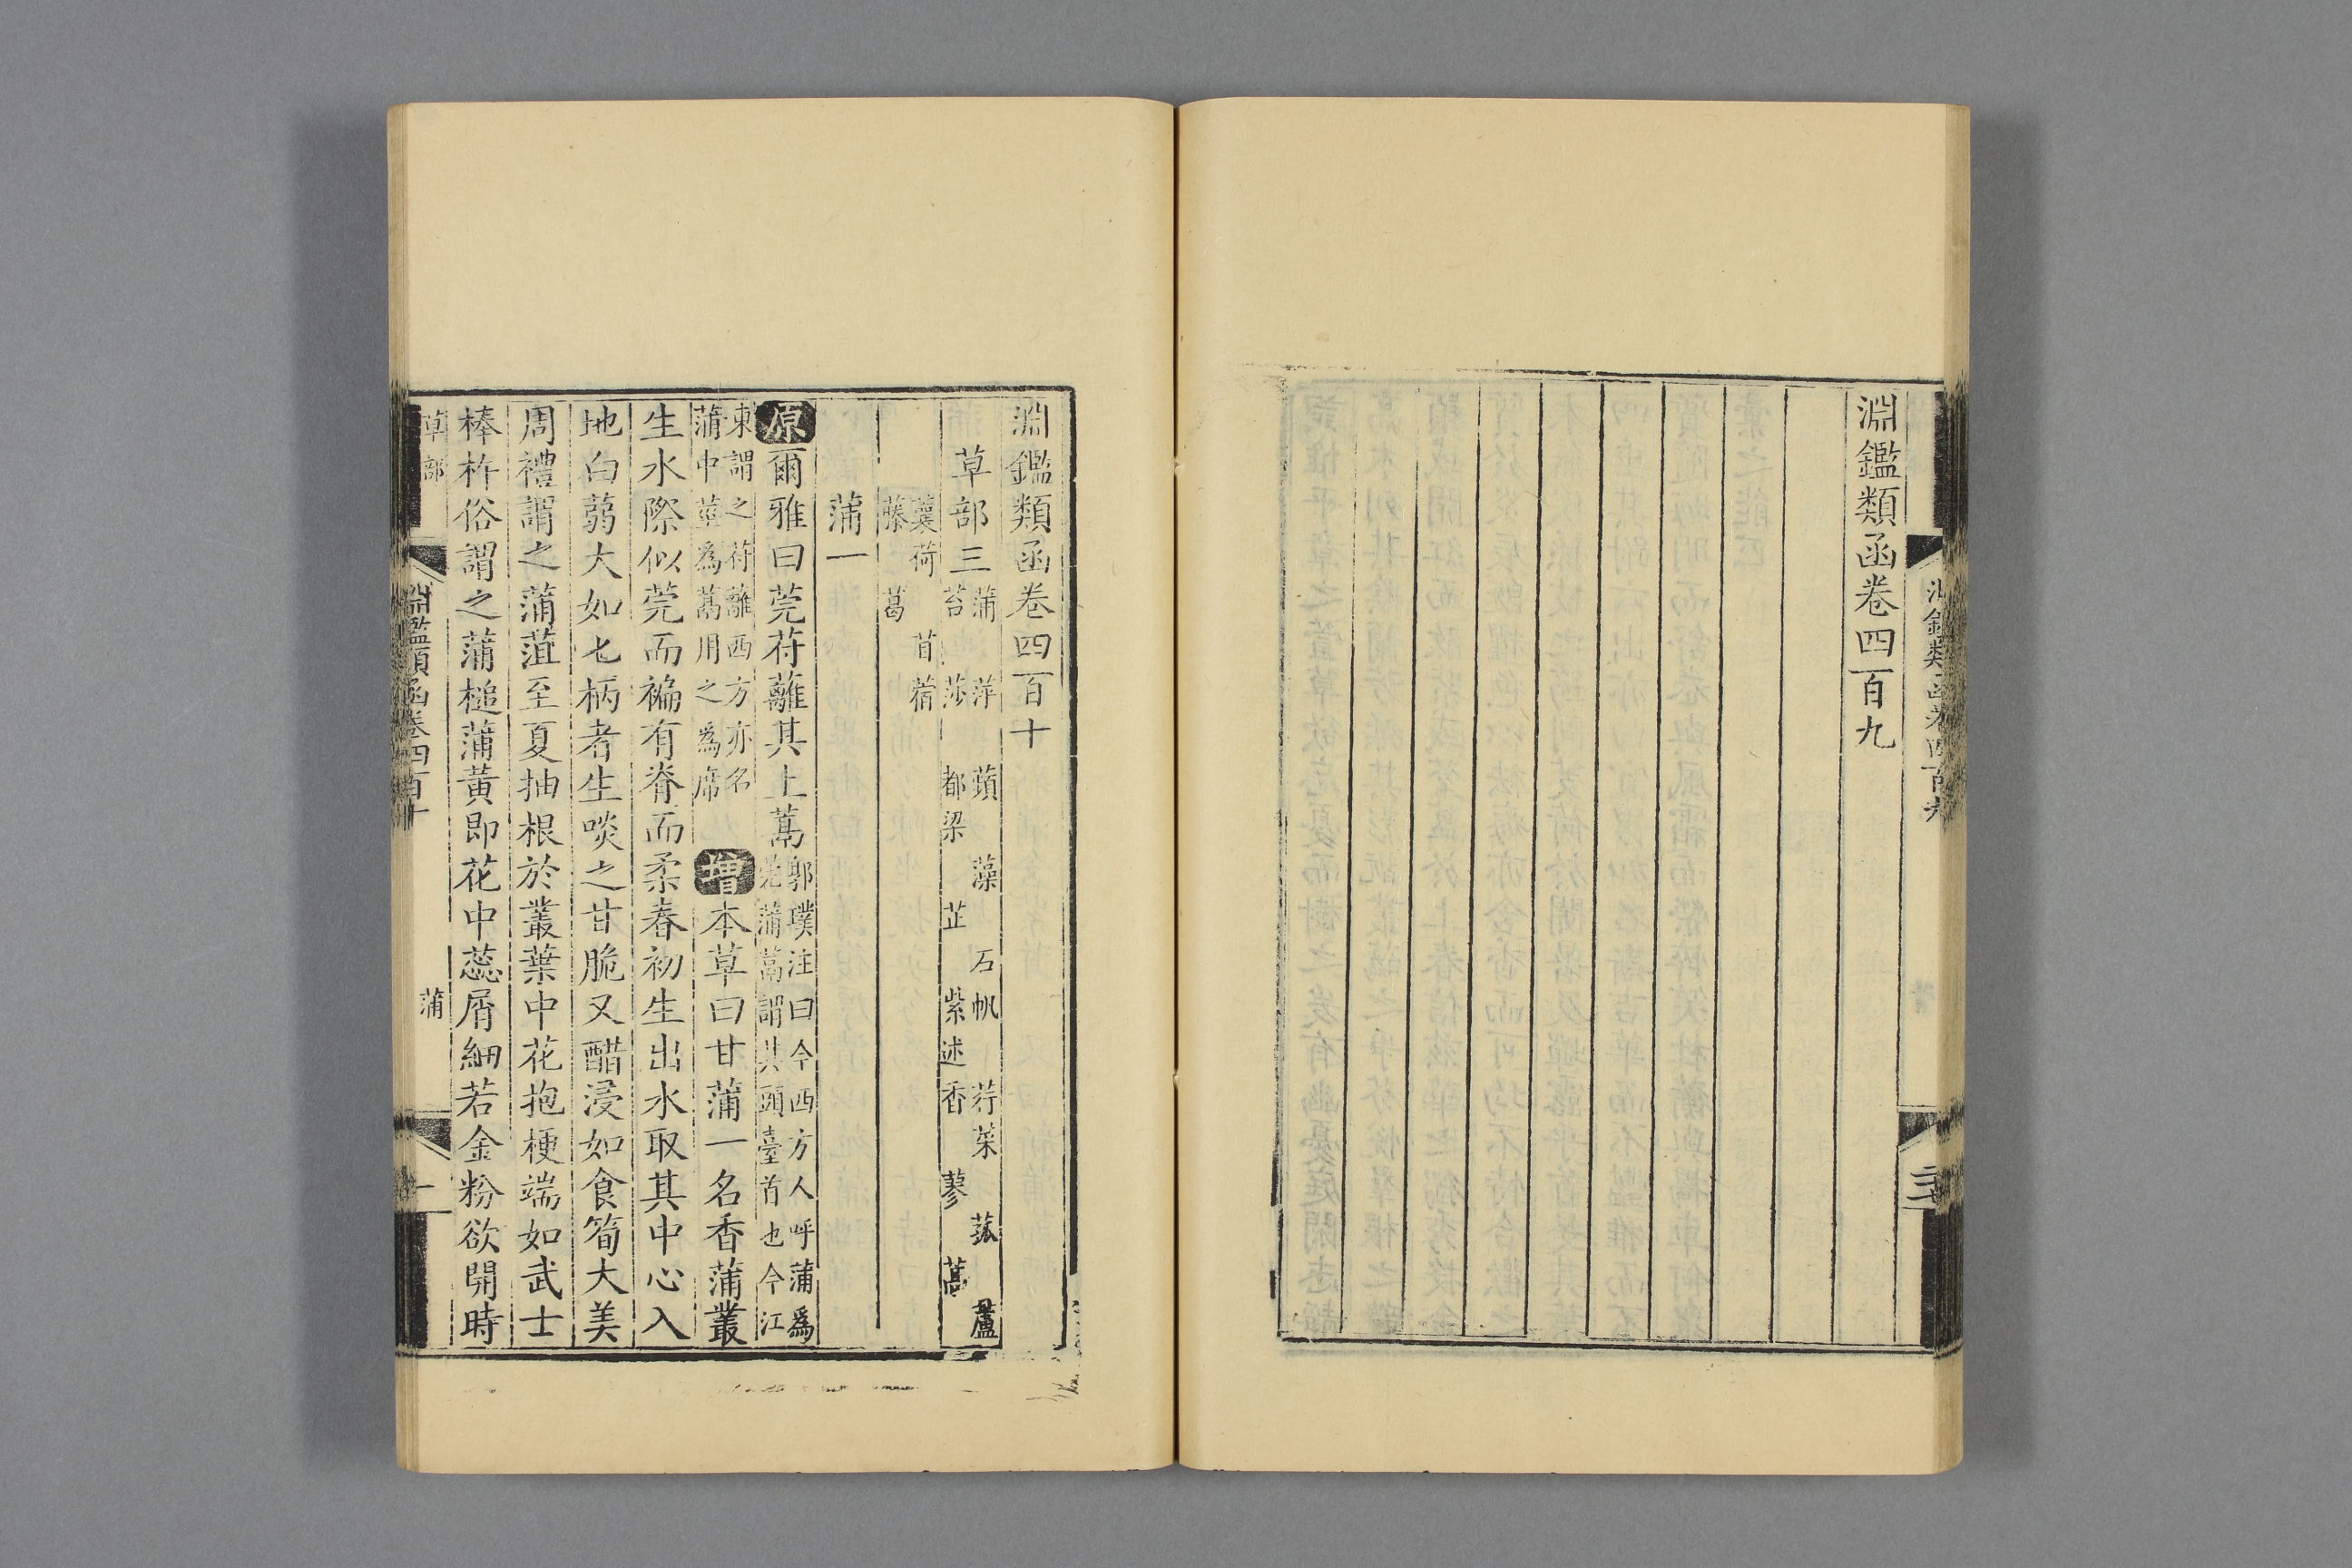 淵鑑類函卷四百九
淵鑑類函卷四百十
草部三 蒲 萍 蘋 藻 石帆 荇菜 菰 蘆
苔 莎 都梁 芷 紫述香 蓼 蒿
蘘荷 苜蓿
藤 葛
蒲一
原爾雅曰莞苻蘺其上蒚郭璞注曰今西方人呼蒲爲
莞蒲蒚謂其頭臺首也今江
東謂之苻蘺西方亦名
蒲中莖爲蒚用之爲席
增本草曰甘蒲一名香蒲叢
生水際似莞而褊有脊而柔春初生出水取其中心入
地白蒻大如匕柄者生啖之甘脆又醋浸如食筍大美
周禮謂之蒲菹至夏抽根於叢葉中花抱梗端如武士
棒杵俗謂之蒲槌蒲黃即花中蕊屑細若金粉欲開時
草部
淵鑑類函卷四百十
蒲
一